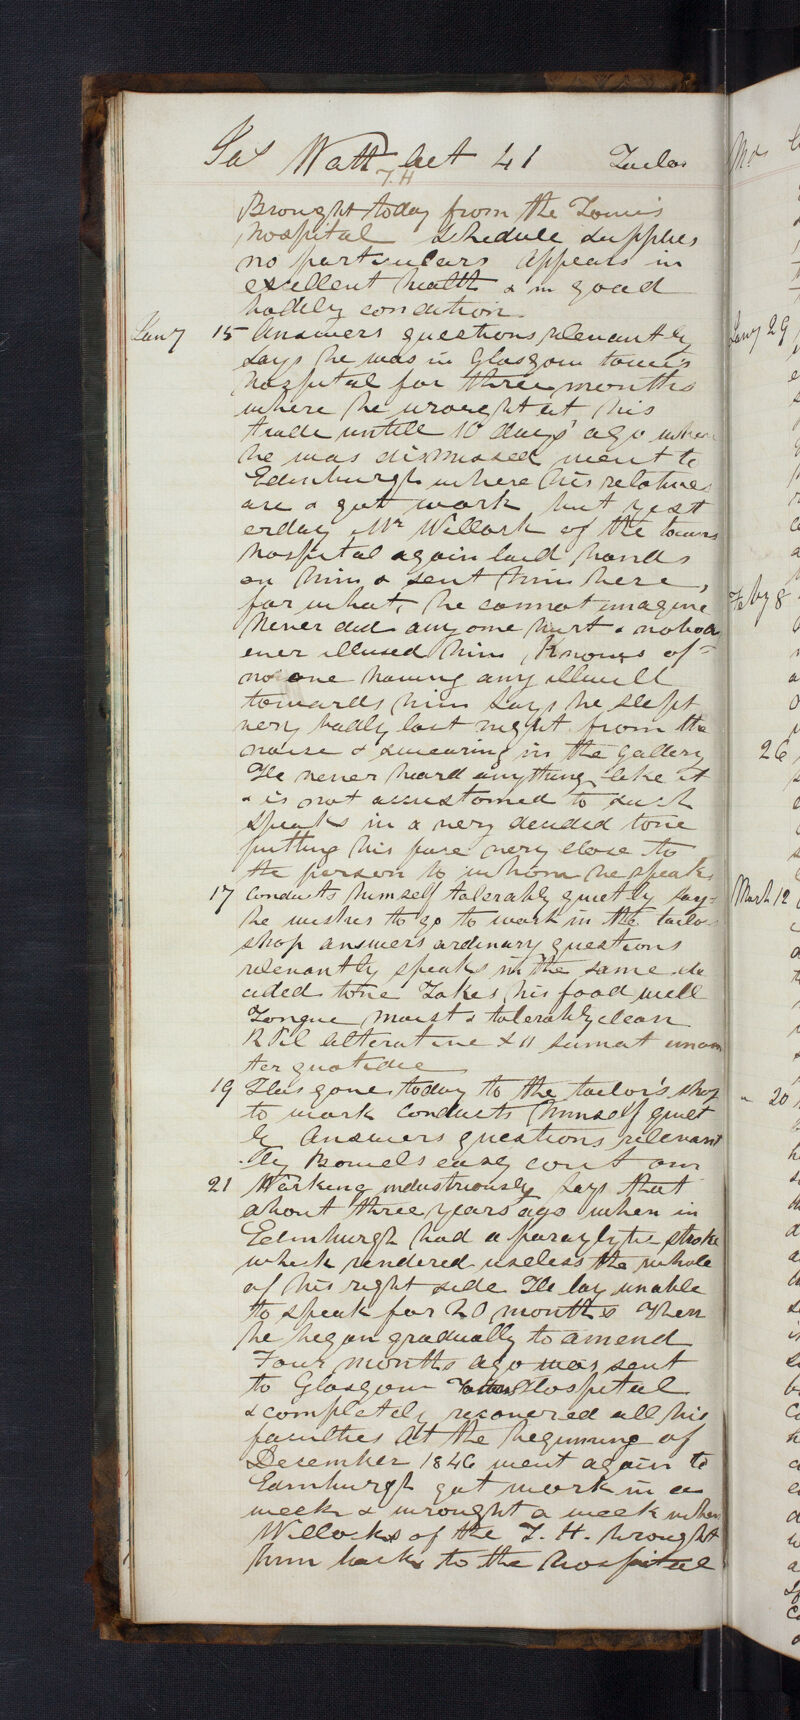 Jas Watt aet 41 Tailor
T.H
Brought today from the Town's
hospital Schedule supplies
no particulars Appears in
excellent health & in good
bodily condition
Jany 15 Answers questions relevantly
says he was in Glasgow town's
hospital for three months
where he wrought at his
trade untill 10 days' ago when
he was dismissed went to
Edinburgh where his relatives
are & got work but yest
erday Mr Willock of the towns
hospital again laid hands
on him & sent him here,
for what, he cannot imagine
Never did any one hurt & nobody
ever illused him Knows of
no one having any illwill
towards him Says he slept
very badly last night from the
noise & swearing in the Gallery
He never heard anything like it
& is not accustomed to such
speaks in a very decided tone
putting his face very close to
the person to whom he speaks
17 Conducts himself tolerably quietly says
he wishes to go to work in the tailor
shop answers ordinary questions
relevantly speaks in the same de
cided tone Takes his food well
Tongue moist & tolerably clean
R Pil alterative sumat unam
ter quotidie
19 Has gone today to the tailor's shop
to work Conducts himself quiet
ly Answers questions relevant
tly Bowels easy
21 Working industriously Says that
about three years ago when in
Edinburgh had a paraylytic stroke
which rendered useless the whole
of his right side He lay unable
to speak for 20 months Then
he began gradually to amend
Four months ago was sent
to Glasgow Town Hospital
& completely recovered all his
faculties At the beginning of
December 1846 went again to
Edinburgh got work in a
week & wrought a week when
Willocks of the T. H. brought
him back to the hospital
Jany 29
Feby 8
26
March 12
" 20